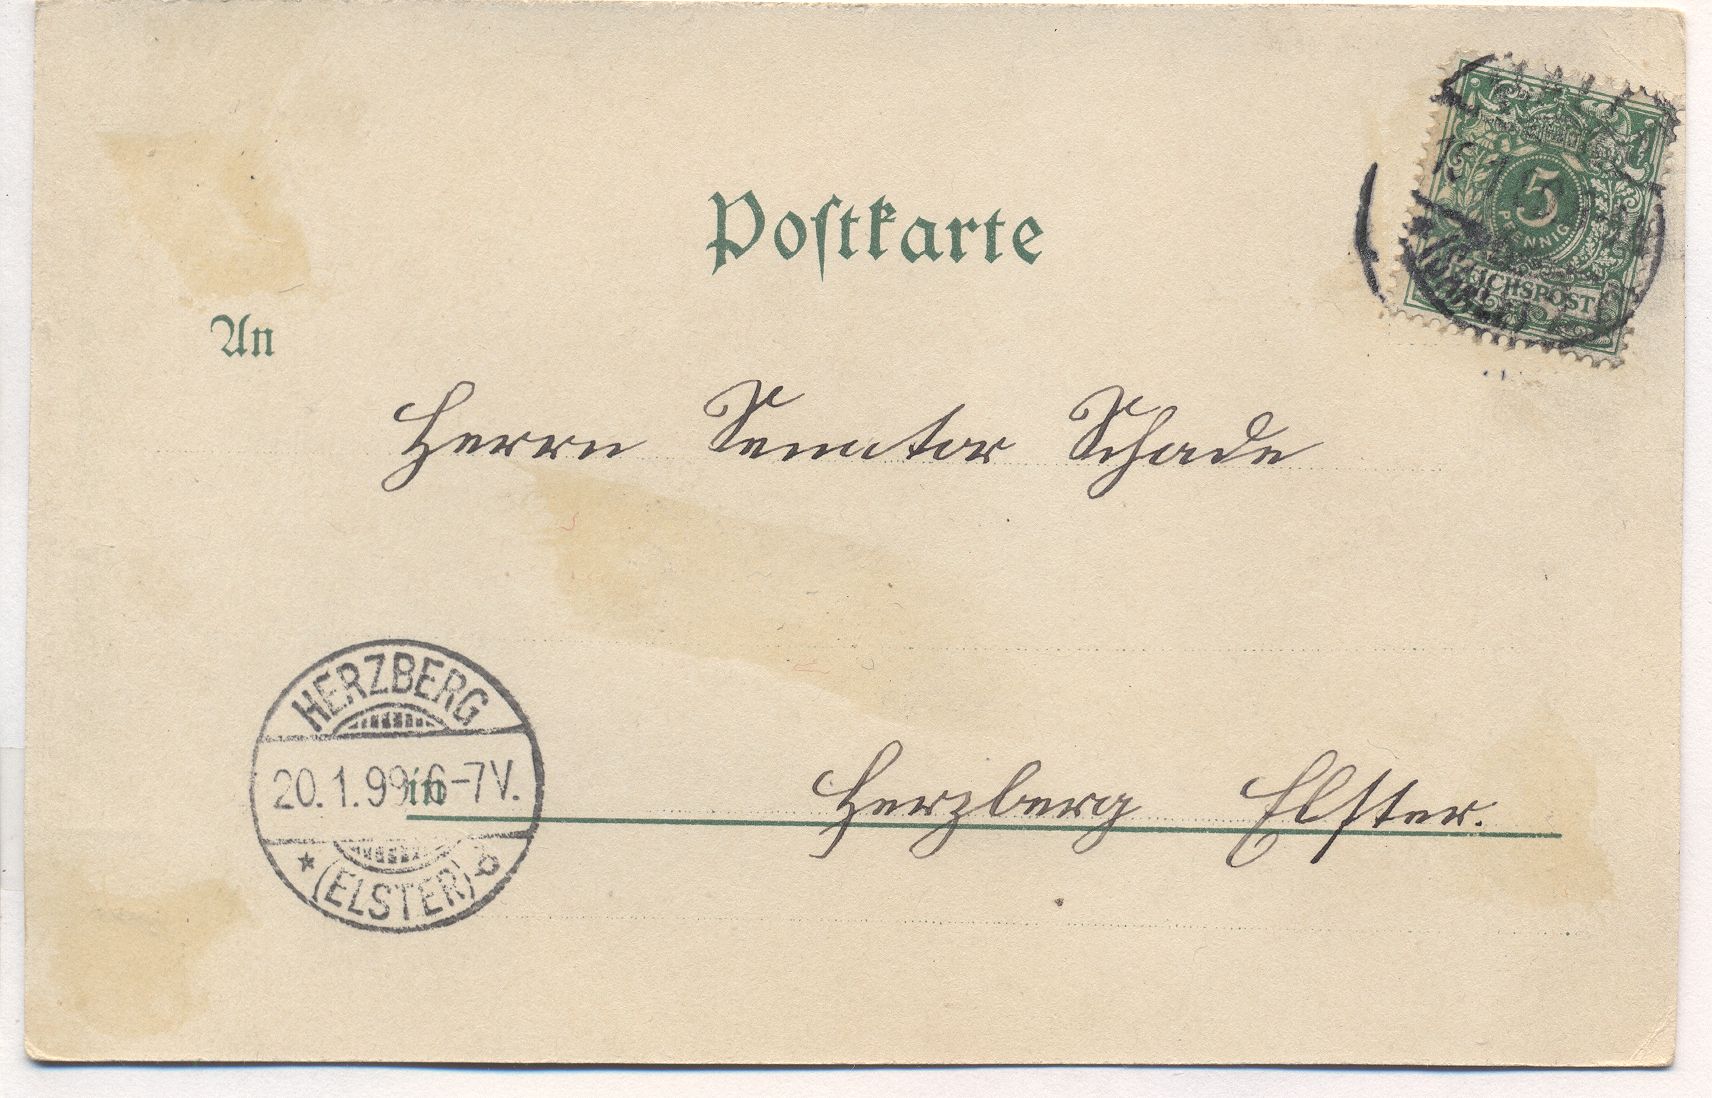 Postkarte
5
PFENNIG
REICHSPOST
An
Herrn Senator Schade
HERZBERG
20.1.99. 6-7V.
in
Herzberg Elster.
* (ELSTER) b